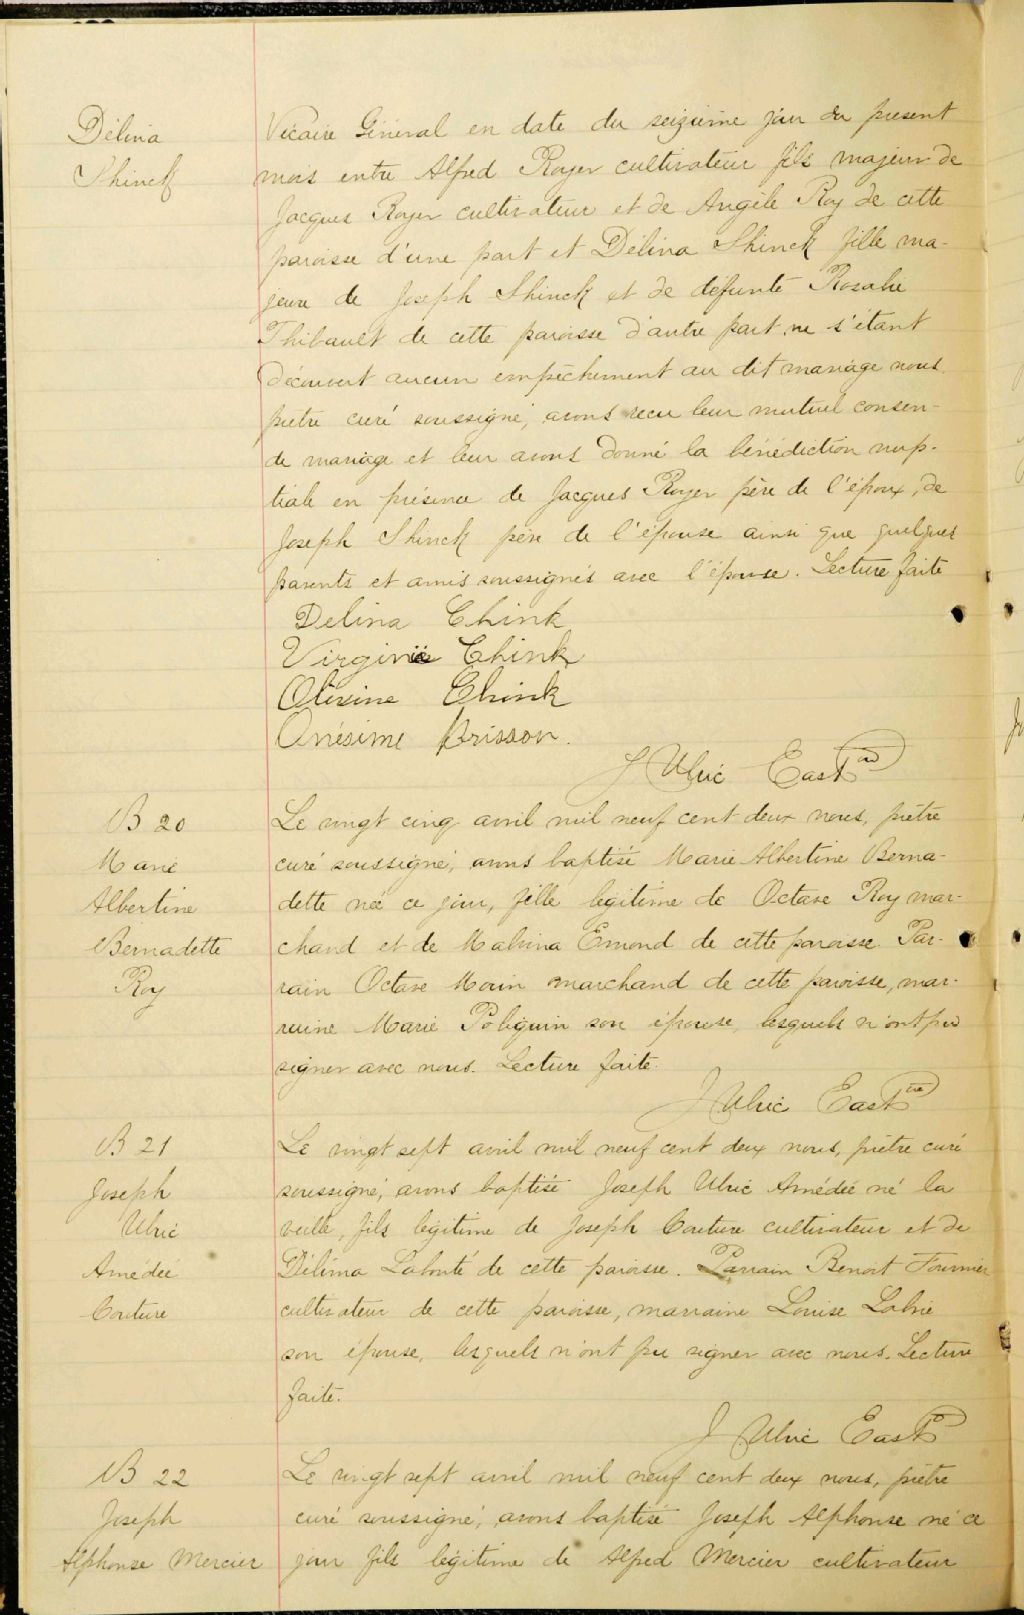 Délina
Shinck
Vicaire Général en date du seizième jour du présent
mois entre Alfred Royer cultivateur fils majeur de
Jacques Royer cultivateur et de Angèle Roy de cette
paroisse d'une part et Délina Shinck fille ma-
jeure de Joseph Shinck et de défunte Rosalie
Thibault de cette paroisse d'autre part ne s'étant
découvert aucun empêchement au dit mariage nous
prêtre curé soussigné, avons recu leur mutuel consen-
de mariage et leur avons donné la bénédiction nup-
tiale en présence de Jacques Royer père de l'époux, de
Joseph Shinck père de l'épouse ainsi que quelques
parents et amis soussignés avec l'épouse. Lecture faite
Delina Chink
Virginie Chink
Olivine Chink
Onésime Brisson.
J Ulric East
B 20
Marie
Albertine
Bernadette
Roy
Le vingt cinq avril mil neuf cent deux nous, prêtre
curé soussigné, avons baptisé Marie Albertine Berna-
dette née ce jour, fille légitime de Octave Roy mar-
chand et de Malvina Emond de cette paroisse Par-
rain Octave Morin marchand de cette paroisse, mar-
raine Marie Poliquin son épouse, lesquels n'ont pu
signer avec nous. Lecture faite.
J Ulric East
B 21
Joseph
Ulric
Amédée
Couture
Le vingt sept avril mil neuf cent deux nous, prêtre curé
soussigné, avons baptisé Joseph Ulric Amédée né la
veille, fils légitime de Joseph Couture cultivateur et de
Délima Labonté de cette paroisse. Parrain Benoit Fournier
cultivateur de cette paroisse, marraine Louise Labrie
son épouse, lesquels n'ont pu signer avec nous. Lecture
faite.
J Ulric East
B 22
Joseph
Alphonse Mercier
Le vingt sept avril mil neuf cent deux nous, prêtre
curé soussigné, avons baptisé Joseph Alphonse né ce
jour fils légitime de Alfred Mercier cultivateur